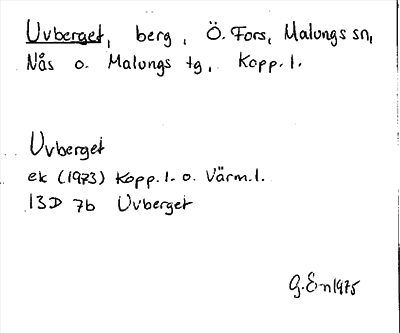 Uvberget, berg, Ö. Fors, Malungs sn,
Nås o. Malungs tg, Kopp. l.
Uvberget
ek (1973) Kopp. l. o. Värm. l.
13D 7b Uvberget
G.E-n 1975